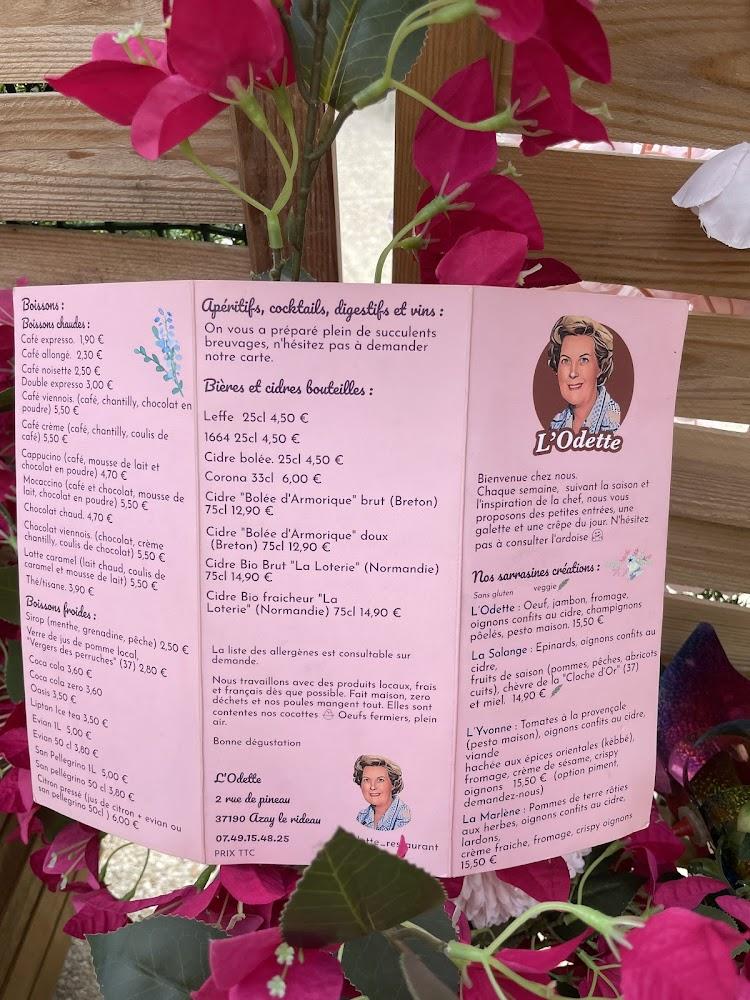 Boissons :
Boissons chaudes :
Café expresso. 1,90 €
Café allongé. 2,30 €
Café noisette 2,50 €
Double expresso 3,00 €
Café viennois. (café, chantilly, chocolat en
poudre) 5,50 €
Café crème (café, chantilly, coulis de
café) 5,50 €
Cappucino (café, mousse de lait et
chocolat en poudre) 4,70 €
Mocaccino (café et chocolat, mousse de
lait, chocolat en poudre) 5,50 €
Chocolat chaud. 4,70 €
Chocolat viennois. (chocolat, crème
chantilly, coulis de chocolat) 5,50 €
Latte caramel (lait chaud, coulis de
caramel et mousse de lait) 5,50 €
Thé/tisane. 3,90 €
Boissons froides :
Sirop (menthe, grenadine, pêche) 2,50 €
Verre de jus de pomme local,
"Vergers des perruches" (37) 2,80 €
Coca cola 3,60 €
Coca cola zero 3,60
Oasis 3,50 €
Lipton Ice tea 3,50 €
Evian 1L 5,00 €
Evian 50 cl 3,80 €
San Pellegrino 1L 5,00 €
San pelégrino 50 cl ) 3,80 €
Citron pressé (jus de citron + evian ou
san pellegrino 50cl ) 6,00 €
Apéritifs, cocktails, digestifs et vins :
On vous a préparé plein de succulents
breuvages, n'hésitez pas à demander
notre carte.
Bières et cidres bouteilles :
Leffe 25cl 4,50 €
1664 25cl 4,50 €
Cidre bolée. 25cl 4,50 €
Corona 33cl 6,00 €
Cidre "Bolée d'Armorique" brut (Breton)
75cl 12,90 €
Cidre "Bolée d'Armorique" doux
(Breton) 75cl 12,90 €
Cidre Bio Brut "La Loterie" (Normandie)
75cl 14,90 €
Cidre Bio fraicheur "La
Loterie" (Normandie) 75cl 14,90 €
La liste des allergènes est consultable sur
demande.
Nous travaillons avec des produits locaux, frais
et français dès que possible. Fait maison, zero
déchets et nos poules mangent tout. Elles sont
contentes nos cocottes Oeufs fermiers, plein
air.
Bonne dégustation
L'Odette
2 rue de pineau
37190 Azay le rideau
07.49.15.48.25
PRIX TTC
restaurant
L'Odette
Bienvenue chez nous.
Chaque semaine, suivant la saison et
l'inspiration de la chef, nous vous
proposons des petites entrées, une
galette et une crêpe du jour. N'hésitez
pas à consulter l'ardoise
Nos sarrasines créations :
Sans gluten veggie
L'Odette : Oeuf, jambon, fromage,
oignons confits au cidre, champignons
pôelés, pesto maison. 15,50 €
La Solange : Epinards, oignons confits au
cidre,
fruits de saison (pommes, pêches, abricots
cuits), chèvre de la "Cloche d'Or" (37)
et miel. 14,90 €
L'Yvonne : Tomates à la provençale
(pesto maison), oignons confits au cidre,
viande
hachée aux épices orientales (kébbé),
fromage, crème de sésame, crispy
oignons 15,50 € (option piment,
demandez-nous)
La Marlène : Pommes de terre rôties
aux herbes, oignons confits au cidre,
lardons,
crème fraiche, fromage, crispy oignons
15,50 €